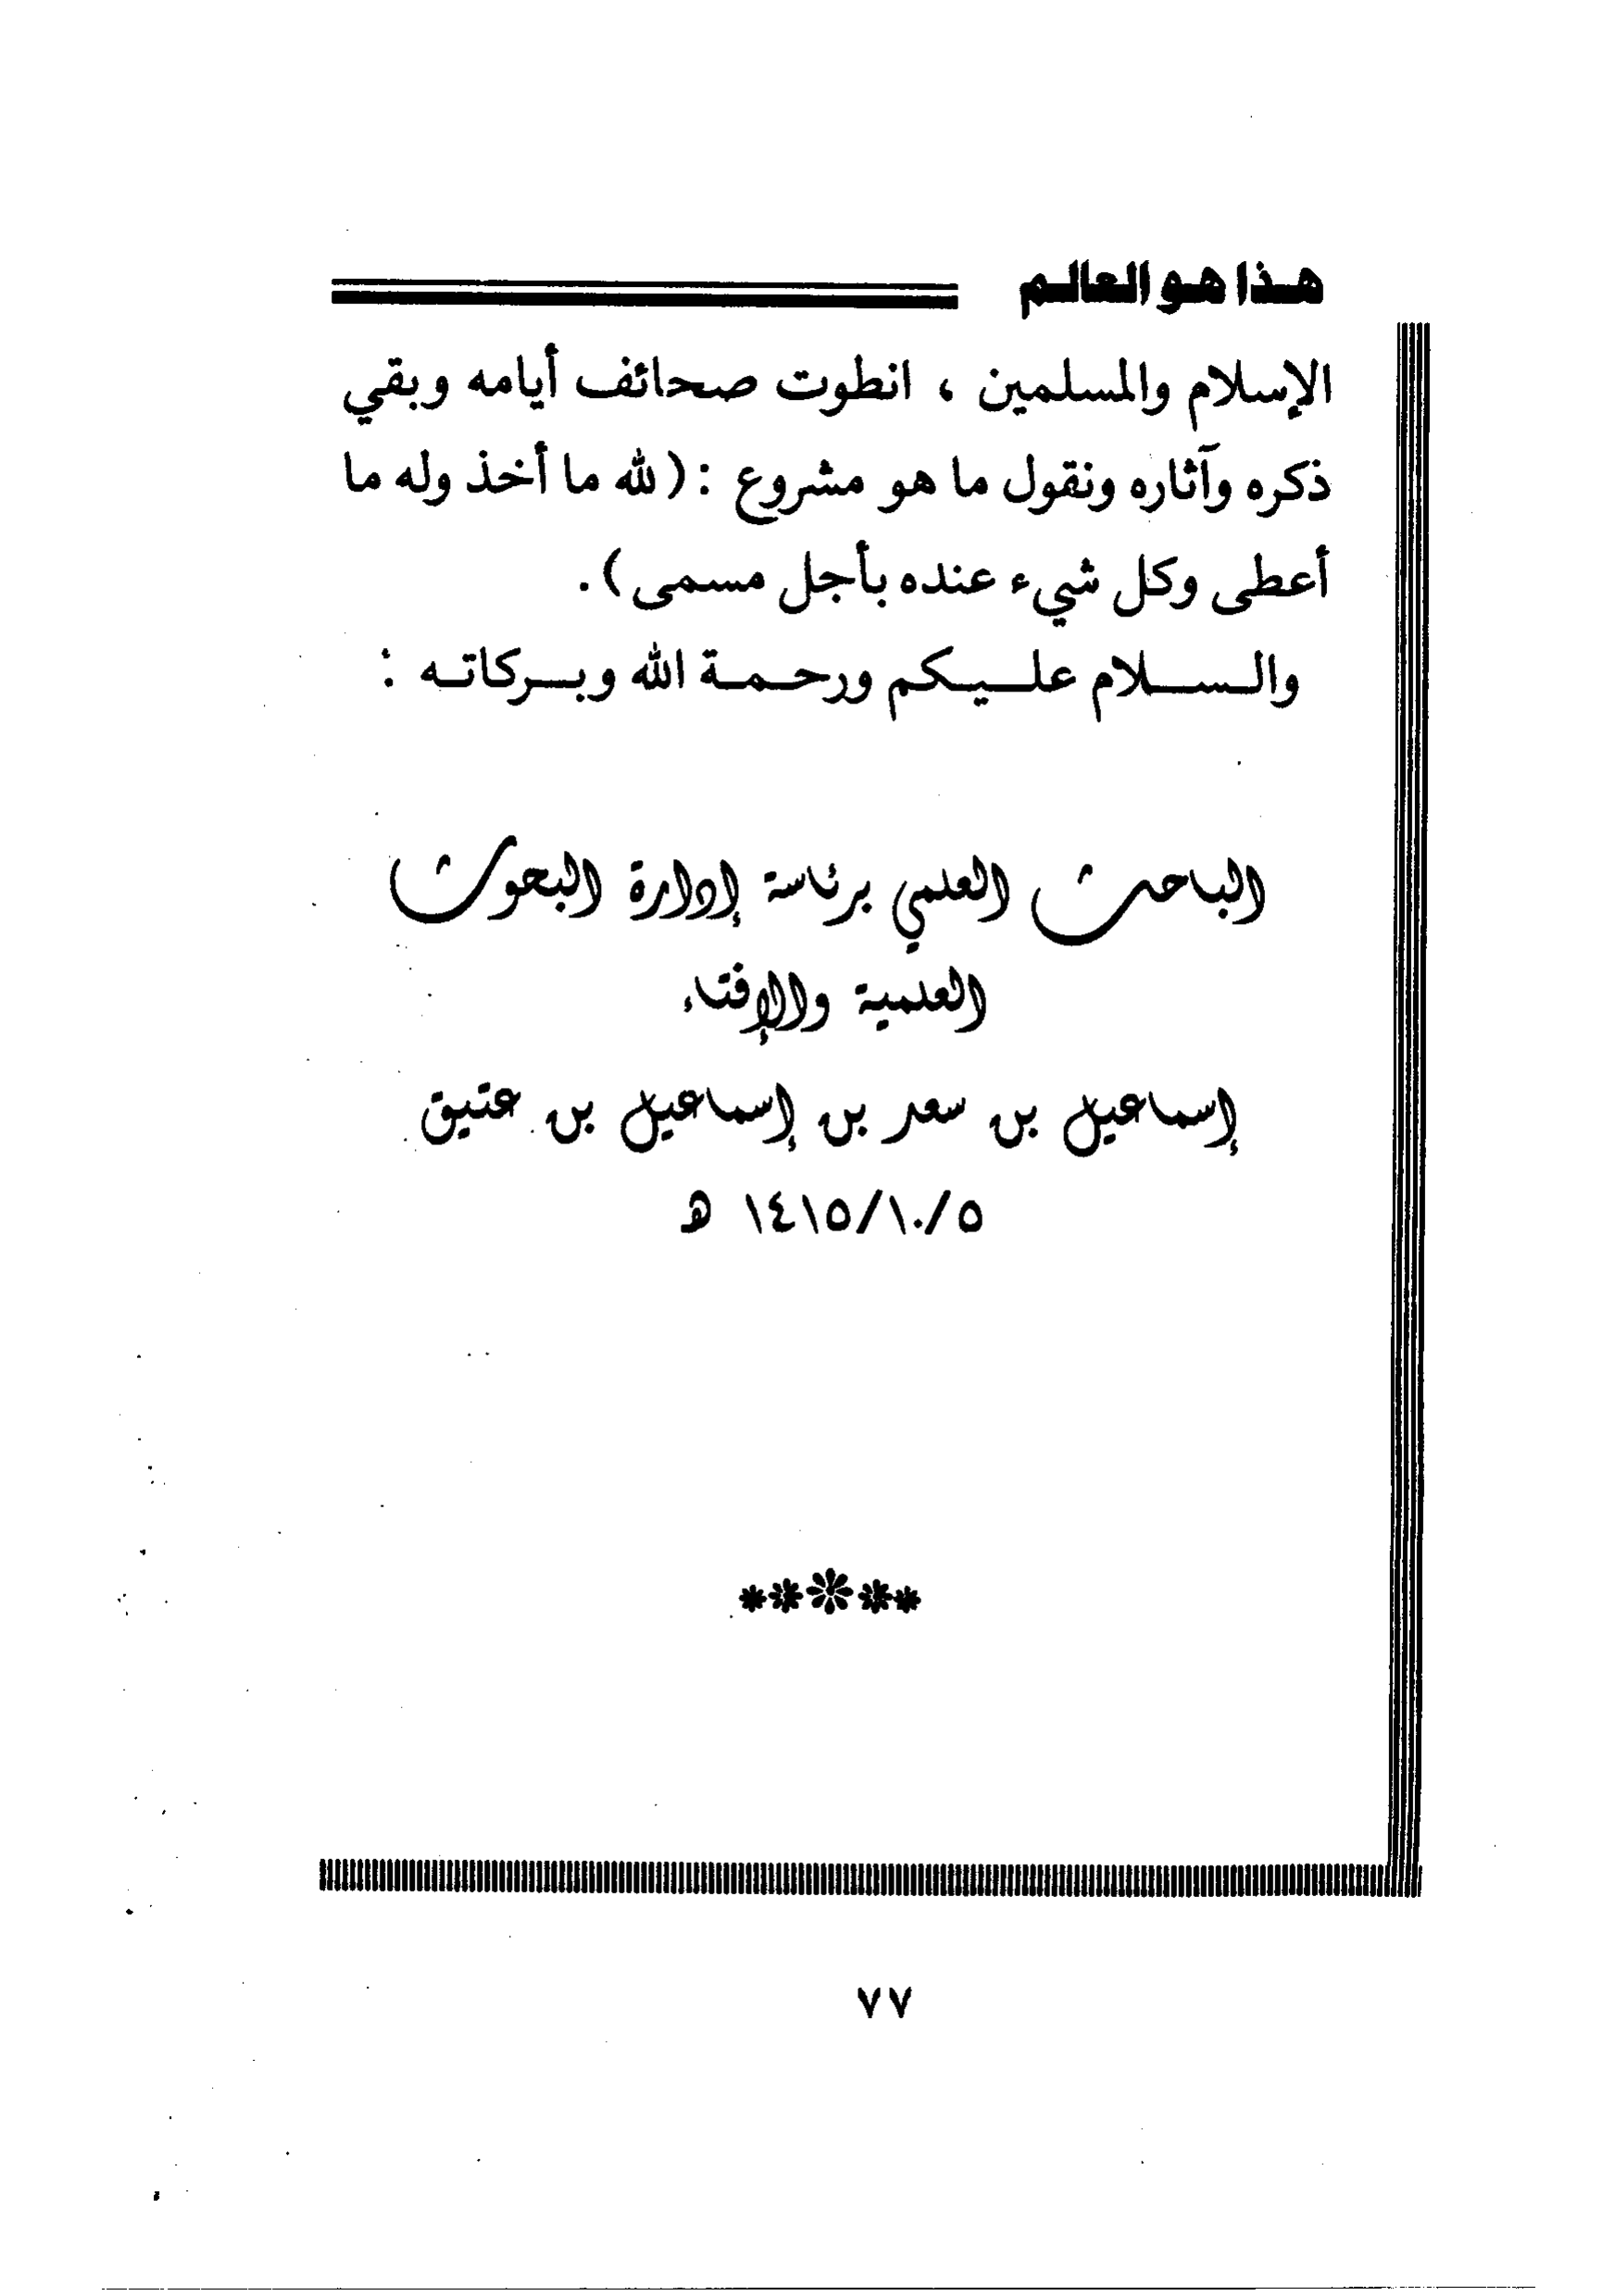 هذا هو العالم
الإسلام والمسلمين ، انطوت صحائف أيامه وبقي
ذكره وآثاره ونقول ما هو مشروع : (لله ما أخذ وله ما
أعطى وكل شيء عنده بأجل مسمى) .
والسلام عليكم ورحمة الله وبركاته :
الباحث العلمي برئاسة إدارة البحوث
العلمية والإفتاء
إسماعيل بن سعد بن إسماعيل بن عتيق
١٤١٥/١٠/٥ هـ
٧٧